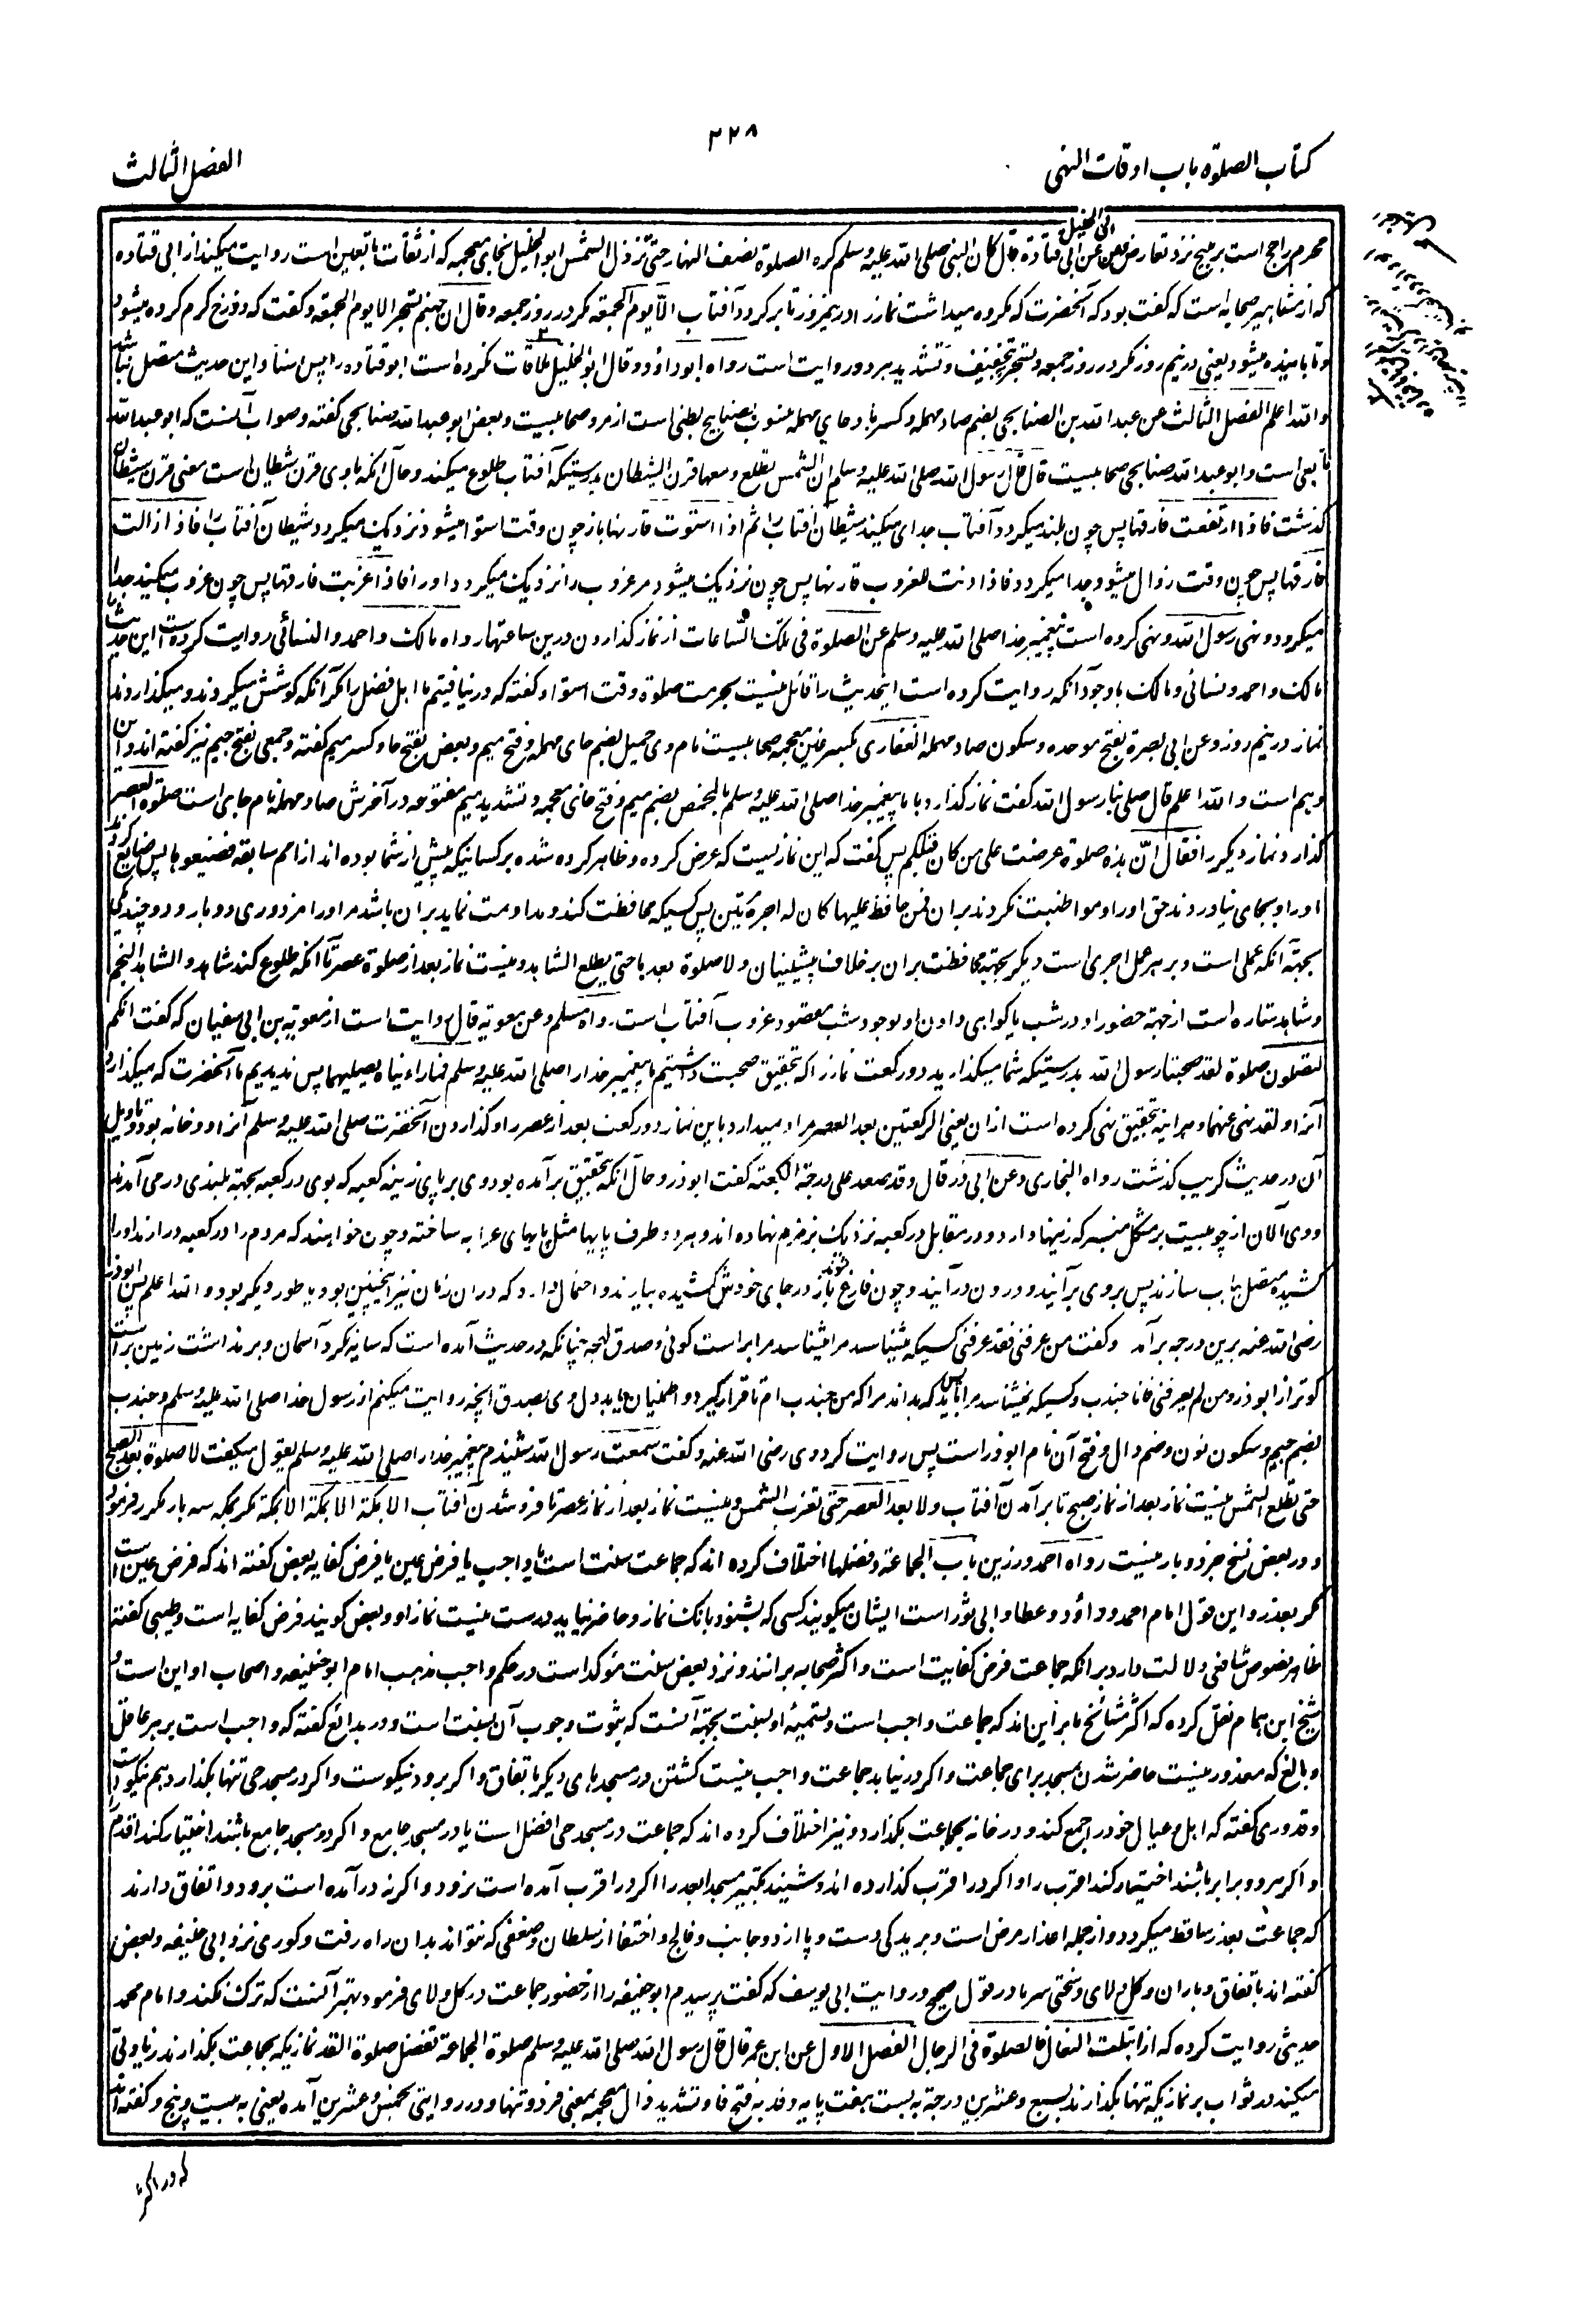 ۲۲۸
کتاب الصلوة باب اوقات النهی
الفصل الثالث
محرم راجح است بر مبیح نزد تعارض وعن ابی الخلیل عن ابی قتادة قال کان النبی صلی الله علیه وسلم کره الصلوة نصف النهار حتی تزول الشمس ابو الخلیل بخای معجمه که از ثقات تابعین است روایت میکند از ابی قتاده
که از مشاهیر صحابه است که گفت بود که آنحضرت که مکروه میداشت نماز را در نیمروز تا برگردد آفتاب الا یوم الجمعة مگر در روز جمعه و قال ان جهنم تسجر الا یوم الجمعة و گفت که دوزخ گرم کرده میشود
و تابانیده میشود یعنی در نیم روز مگر در روز جمعه و تسجر بتخفیف و تشدید هر دو روایت است رواه ابو داؤد و قال ابو الخلیل ملاقات نکرده است ابو قتاده را پس اسناد این حدیث متصل نباشد
والله اعلم الفصل الثالث عن عبد الله بن الصنابحی بضم صاد مهمله و کسر با و حای مهمله منسوب بصنابح بطنی است از مرو صحابیست و بعض ابو عبد الله صنابحی گفته و صواب آنست که ابو عبد الله
تابعی است و ابو عبد الله صنابحی صحابیست قال قال رسول الله صلی الله علیه وسلم ان الشمس تطلع و معها قرن الشیطان بدرستیکه آفتاب طلوع میکند و حال آنکه با وی قرن شیطان است معنی قرن شیطان
گذشت فاذا ارتفعت فارقها پس چون بلند میگردد آفتاب جدای میکند شیطان آفتاب را ثم اذا استوت قارنها باز چون وقت استوا میشود نزدیک میگردد شیطان آفتاب را فاذا زالت
فارقها پس چون وقت زوال میشود جدا میگردد فاذا دنت للغروب قارنها پس چون نزدیک میشود مر غروب را نزدیک میگردد او را فاذا غربت فارقها پس چون غروب میکند جدا
میگردد و نهی رسول الله و نهی کرده است پیغمبر خدا صلی الله علیه وسلم عن الصلوة فی تلک الساعات از نماز گذاردن درین ساعتها رواه مالک و احمد و النسائی روایت کرده است این حدیث را
مالک و احمد و نسائی و مالک با وجود آنکه روایت کرده است این حدیث را قائل نیست بحرمت صلوة وقت استوا و گفته که در نیافتیم ما اهل فضل را مگر آنکه کوشش میکردند و میگذاردند
نماز در نیم روز و عن ابی بصرة بفتح موحده و سکون صاد مهمله الغفاری بکسر غین معجمه صحابیست نام وی حمیل بضم حای مهمله و فتح میم و بعض بفتح حا و کسر میم گفته و جمعی بفتح جیم نیز گفته اند و این
وهم است والله اعلم قال صلی بنا رسول الله گفت نماز گذارد با ما پیغمبر خدا صلی الله علیه وسلم بالمخمص بضم میم و فتح خای معجمه و تشدید میم مفتوحه در آخرش صاد مهمله نام جای است صلوة العصر
گذارد نماز دیگر را فقال ان هذه صلوة عرضت علی من کان قبلکم پس گفت که این نمازیست که عرض کرده و ظاهر کرده شده بر کسانیکه پیش از شما بوده اند از امم سابقه فضیعوها پس ضایع کردند
او را و بجای نیاوردند حق او را و مواظبت نکردند بران فمن حافظ علیها کان له اجره مرتین پس کسیکه محافظت کند و مداومت نماید بران باشد مر او را مزدوری دو بار و دو چند یکی
بجهة آنکه عملی است و بر هر عمل اجری است دیگر بجهة محافظت بران بر خلاف پیشینیان و لا صلوة بعدها حتی یطلع الشاهد و نیست نماز بعد از صلوة عصر تا آنکه طلوع کند شاهد و الشاهد النجم
و شاهد ستاره است از جهة حضور او در شب یا گواهی دادن او بوجود شب مقصود غروب آفتاب است رواه مسلم و عن معویة قال روایت است از معویة بن ابی سفیان که گفت انکم
لتصلون صلوة لقد صحبنا رسول الله بدرستیکه شما میگذارید دو رکعت نماز را که بتحقیق صحبت داشتیم ما پیغمبر خدا را صلی الله علیه وسلم فما رایناه یصلیهما پس ندیدیم ما آنحضرت که میگذارد
آنرا و لقد نهی عنهما و هر آئینه بتحقیق نهی کرده است ازان یعنی الرکعتین بعد العصر مراد میدارد باین نماز دو رکعت بعد از عصر را و گذاردن آنحضرت صلی الله علیه وسلم آنرا در خانه بود و تاویل
آن در حدیث کریب گذشت رواه البخاری و عن ابی ذر قال و قد صعد علی درجة الکعبة گفت ابو ذر و حال آنکه بتحقیق برآمده بود وی بر پای زینه کعبه که بوی در کعبه بجهة بلندی درمی آمدند
و وی الآن از چوبیست بر شکل منبر که زینها دارد و در مقابل در کعبه نزدیک بزمزم نهاده اند و هر دو طرف پایها مثل پایهای عرابه ساخته و چون خواهند که مردم را در کعبه درارند او را
کشیده متصل باب سازند پس بروی برآیند و درون درآیند و چون فارغ شوند باز در جای خودش کشیده بیارند و احتمال دارد که دران زمان نیز اینچنین بود یا طور دیگر بود والله اعلم پس ابو ذر
رضی الله عنه برین درجه برآمد و گفت من عرفنی فقد عرفنی کسیکه شناسد مرا میشناسد مرا براست گوئی و صدق لهجه چنانکه در حدیث آمده است که سایه نکرد آسمان و بر نداشت زمین راست
گوتر از ابو ذر و من لم یعرفنی فانا جندب و کسیکه نمیشناسد مرا پس باید که بداند مرا که من جندب ام تا قرار گیرد و اطمنیان یابد دل وی بصدق آنچه روایت میکنم از رسول خدا صلی الله علیه وسلم و جندب
بضم جیم و سکون نون و ضم دال و فتح آن نام ابو ذر است پس روایت کرد وی رضی الله عنه و گفت سمعت رسول الله شنیدم پیغمبر خدا را صلی الله علیه وسلم یقول میگفت لا صلوة بعد الصبح
حتی تطلع الشمس نیست نماز بعد از نماز صبح تا برآمدن آفتاب و لا بعد العصر حتی تغرب الشمس و نیست نماز بعد از نماز عصر تا فرو شدن آفتاب الا بمکة الا بمکة الا بمکة مگر بمکه سه بار مکرر فرمود
و در بعض نسخ جز دو بار نیست رواه احمد و رزین باب الجماعة و فضلها اختلاف کرده اند که جماعت سنت است یا واجب یا فرض عین یا فرض کفایه بعض گفته اند که فرض عین است
مگر بعذر و این قول امام احمد و داؤد و عطا و ابی ثور است ایشان میگویند کسی که بشنود بانگ نماز و حاضر نیاید درست نیست نماز او و بعض گویند فرض کفایه است و طیبی گفته
ظاهر نصوص شافعی دلالت دارد برانکه جماعت فرض کفایت است و اکثر صحابه برانند و نزد بعض سنت مؤکد است در حکم واجب مذهب امام ابو حنیفه و اصحاب او این است و
شیخ ابن همام نقل کرده که اکثر مشائخ ما بر این اند که جماعت واجب است و تسمیه او بسنت بجهة آنست که ثبوت وجوب آن بسنت است و در بدائع گفته که واجب است بر هر عاقل
و بالغ که معذور نیست حاضر شدن بمسجد برای جماعت و اگر در نیابد جماعت واجب نیست گشتن در مسجدهای دیگر باتفاق و اگر برود نیکوست و اگر در مسجد حی تنها بگذارد هم نیکو است
و قدوری گفته که اهل و عیال خود را جمع کند و در خانه بجماعت بگذارد و نیز اختلاف کرده اند که جماعت در مسجد حی افضل است یا در مسجد جامع و اگر دو مسجد جامع باشند اختیار کند اقدم را
و اگر هر دو برابر باشند اختیار کند اقرب را و اگر در اقرب گذارده اند و شنید تکبیر مسجد ابعد را اگر در اقرب آمده است نرود و اگر نه درآمده است برود و اتفاق دارند
که جماعت بعذر ساقط میگردد و از جمله اعذار مرض است و بریدگی دست و پا از دو جانب و فالج و اختفا از سلطان و ضعفی که نتواند بدان راه رفت و کوری نزد ابی حنیفه و بعض
گفته اند باتفاق و باران و گل ولای و سختی سرما در قول صحیح در روایت ابی یوسف که گفت پرسیدم ابو حنیفه را از حضور جماعت در گل ولای فرمود بهتر آنست که ترک نکند و امام محمد
حدیثی روایت کرده که اذا ابتلت النعال فالصلوة فی الرحال الفصل الاول عن ابن عمر قال قال رسول الله صلی الله علیه وسلم صلوة الجماعة تفضل صلوة الفذ نمازیکه بجماعت بگذارند زیادتی
میکند در ثواب بر نمازیکه تنها بگذارند بسبع و عشرین درجة به بست هفت پایه و فذ به فتح فا و تشدید ذال معجمه بمعنی فرد و تنها و در روایتی بخمس و عشرین آمده یعنی به بیست و پنج و گفته اند
که در اکثر